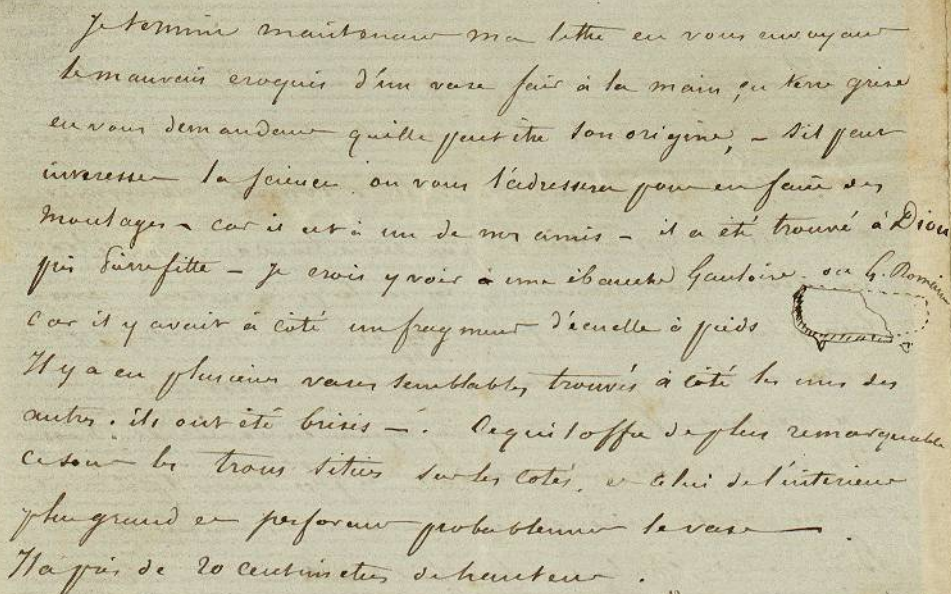 Je termine maintenant ma lettre en vous envoyant
le mauvais croquis d'un vase fait à la main, en terre grise
en vous demandant quelle peut être son origine, - s'il peut
interesser la science on vous l'adressera pour en faire des
moulages - car il est à un de mes amis - il a été trouvé à Diou
près Pierrefitte - je crois y voir une ébauche Gauloise ou G. Romaine
car il y avait à côté un fragment d'écuelle à pieds
Il y a eu plusieurs vases semblables trouvés à côté les uns des
autres. ils ont été brisés -. Ce qu'il offre de plus remarquable
ce sont les trous situés sur les cotés, et celui de l'interieur
plus grand et perforant probablement le vase.
Il a près de 20 centimetres de hauteur.